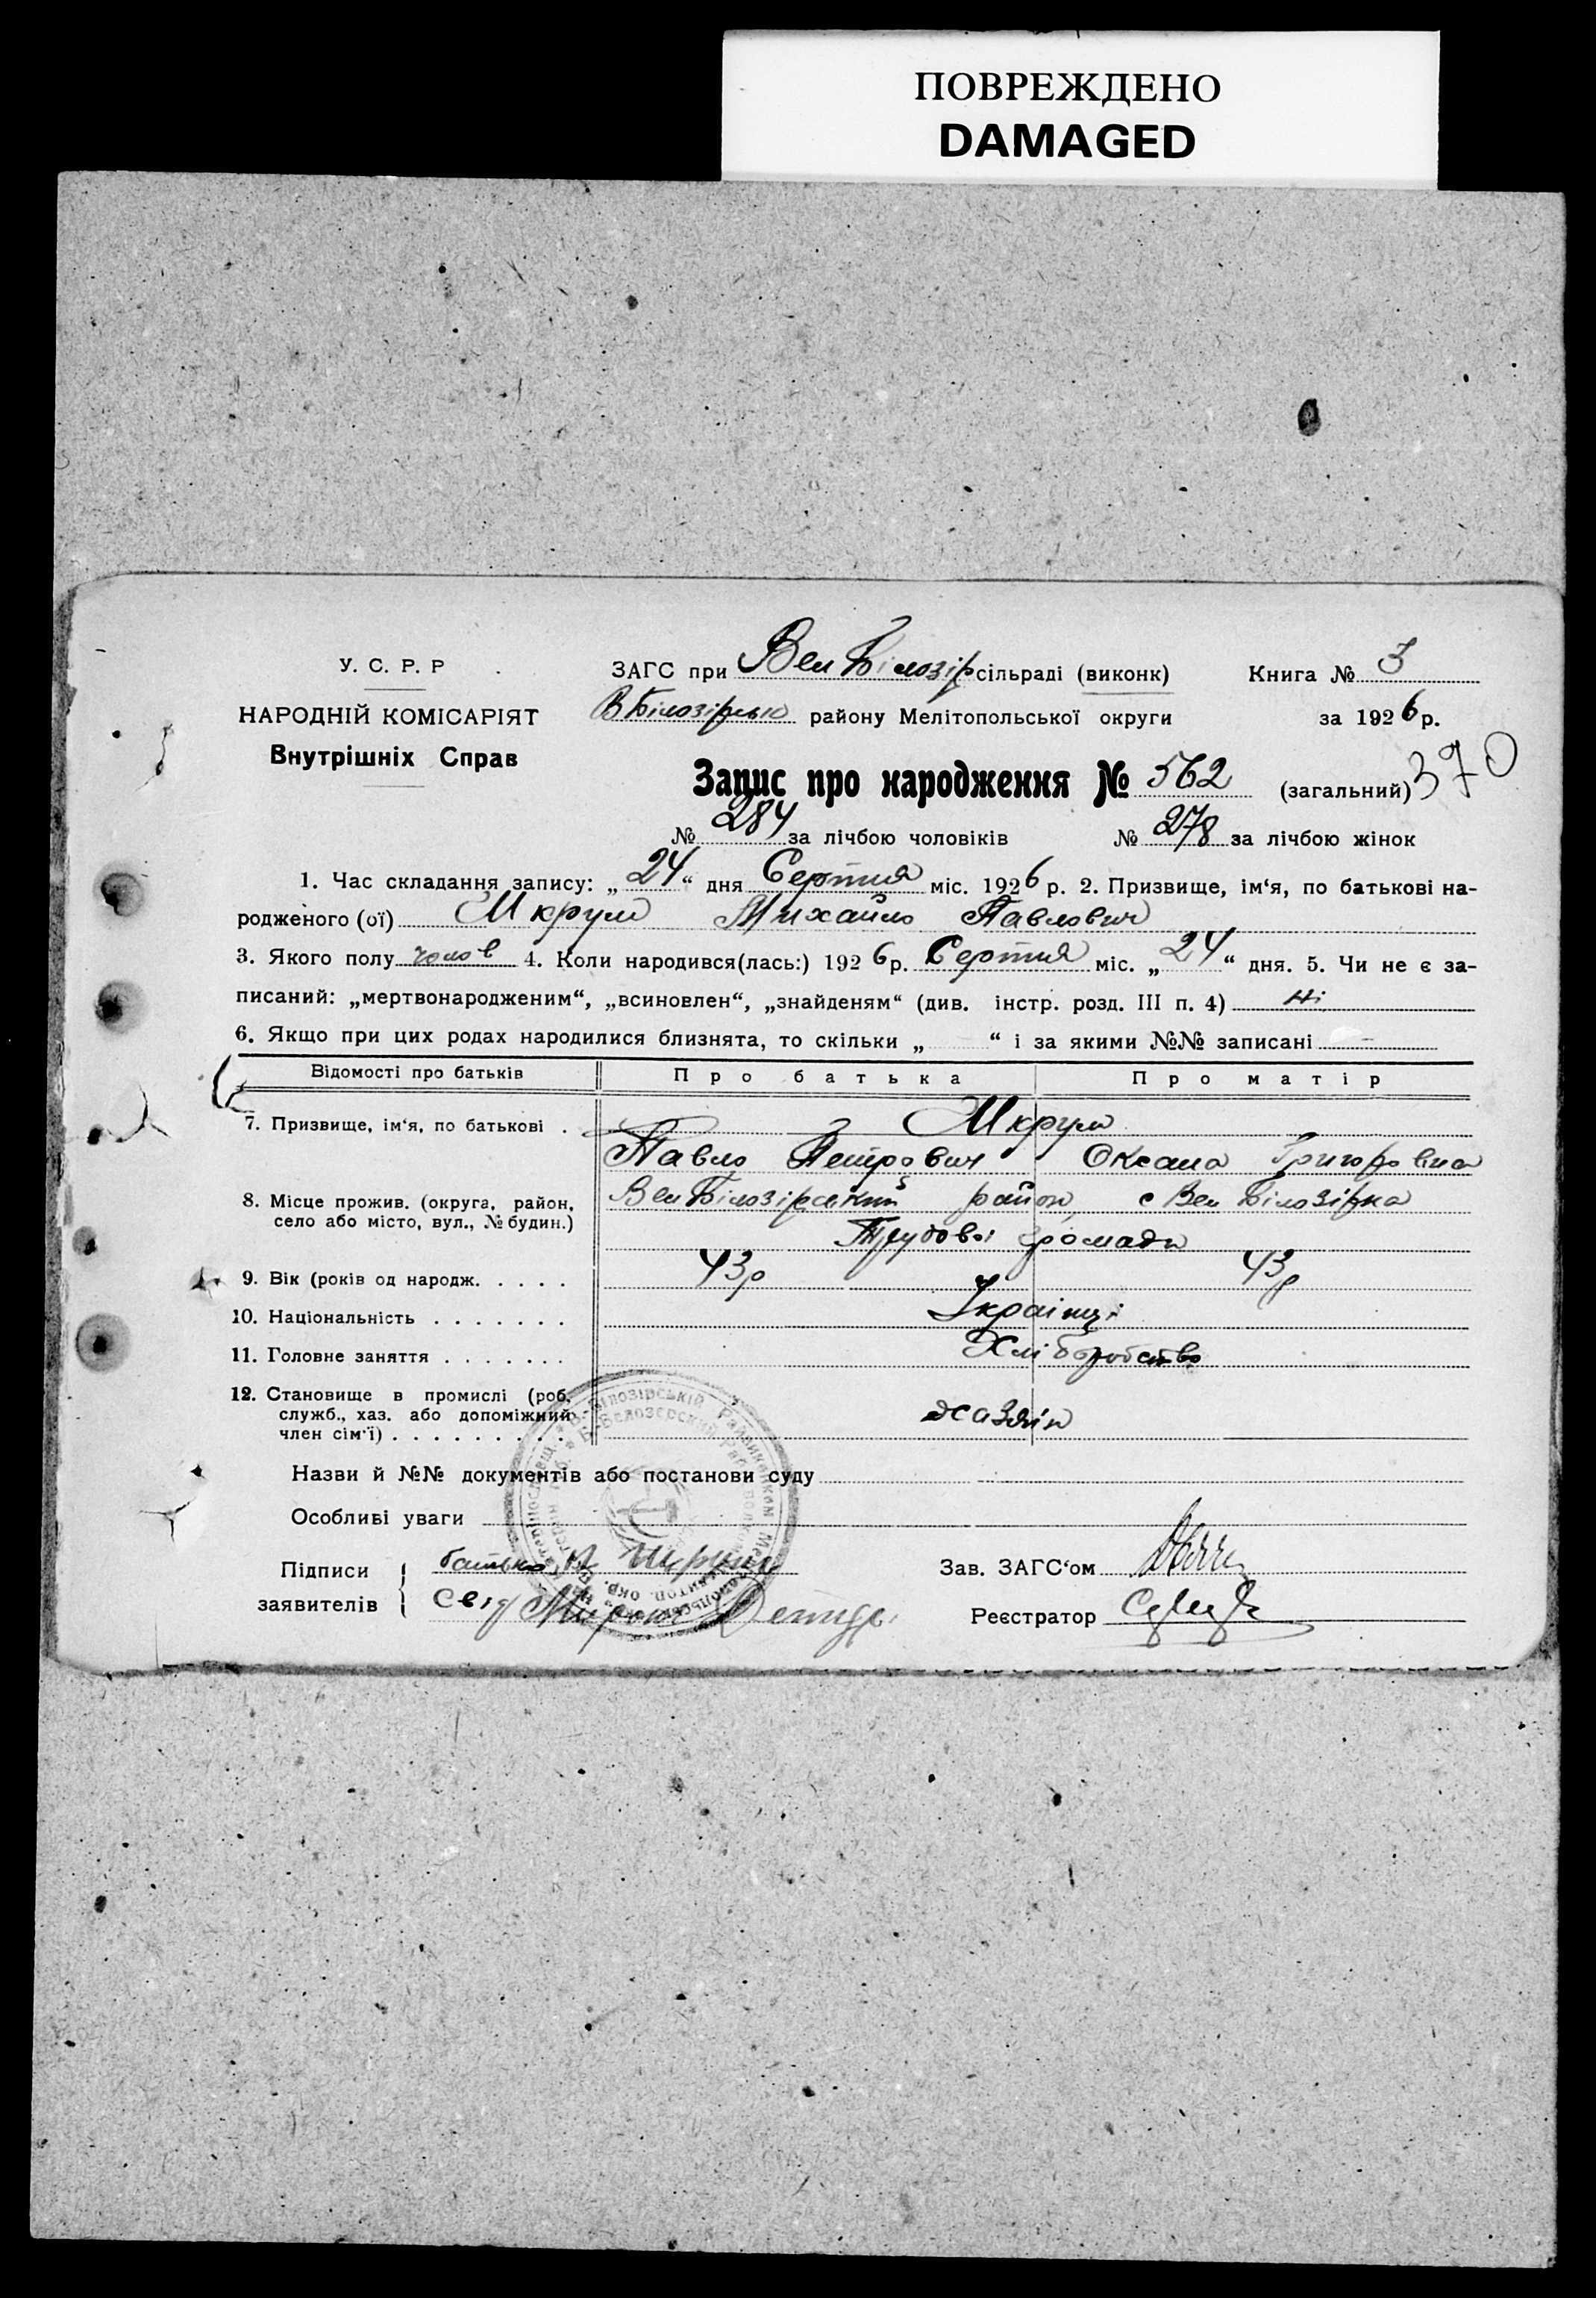 ПОВРЕЖДЕНО
DAMAGED
У. С. Р. Р
НАРОДНІЙ КОМІСАРІЯТ
Внутрішніх Справ
ЗАГС при Вел Білозір сільраді (виконк) Книга № 3
ВБілозірсько району Мелітопольської округи за 1926 р.
Запис про народження № 562 (загальний) 370
№ 284 за лічбою чоловіків № 278 за лічбою жінок
1. Час складання запису: „24“ дня Серпня міс. 1926 р. 2. Призвище, ім‘я, по батькові на-
родженого (ої) Шкрум Михайло Павлович
3. Якого полу чолов 4. Коли народився(лась:) 1926 р. Серпня міс. „24“ дня. 5. Чи не є за-
писаний: „мертвонародженим“, „всиновлен“, „знайденям“ (див. інстр. розд. III п. 4) ні
6. Якщо при цих родах народилися близнята, то скільки „ “ і за якими №№ записані —
Відомості про батьків Про батька Про матір
7. Призвище, ім‘я, по батькові . Шкрум
Павло Петрович Оксана Григоровна
8. Місце прожив. (округа, район, ВелБілозірський район, с Вел Білозірка
село або місто, вул., № будин.) Трудової громади
9. Вік (років од народж. . . . . 43р 43р
10. Національність . . . . . . . Українці
11. Головне заняття . . . . . . . Хліборобство
12. Становище в промислі (роб. хазяїн
служб., хаз. або допоміжний
член сім‘ї) . . . . . . . . .
Назви й №№ документів або постанови суду
Особливі уваги
Підписи батько
Зав. ЗАГС‘ом
заявителів Свід
Реєстратор